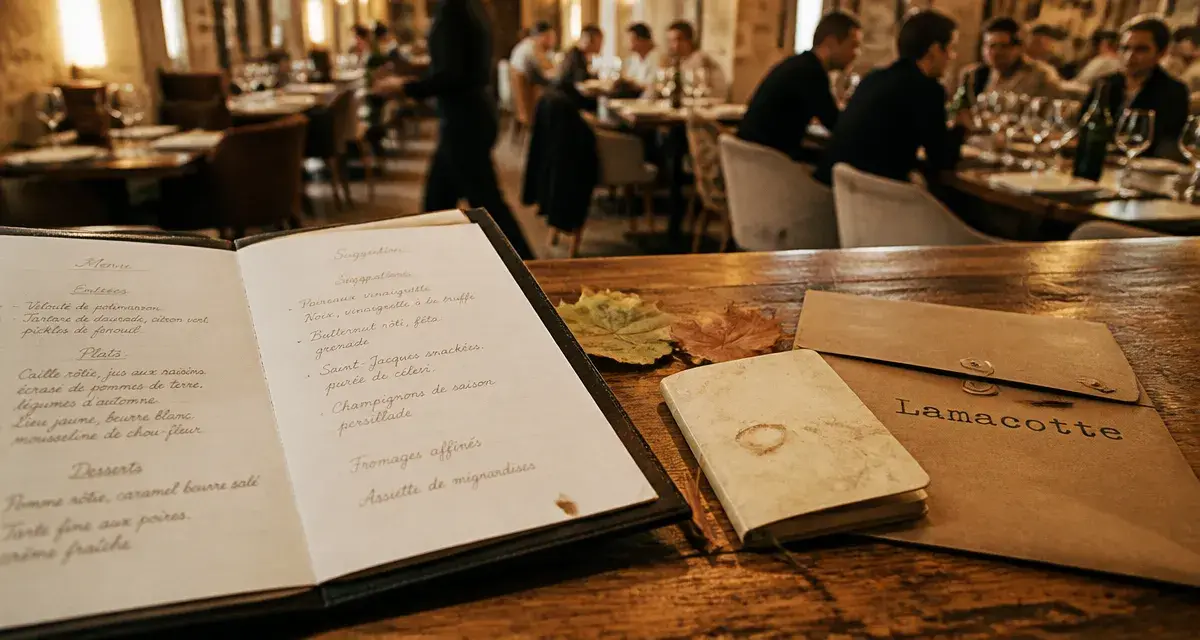 Menue
Entrées
- Velouté de potimarron
- Tartare de daurade, citron vert,
pickles de fenouil.
Plats.
Caille rôtie, jus aux raisins
écrasé de pommes de terre.
légumes d'automne
Lieu jaune, beurre blanc
mousseline de chou-fleur
Desserts
Pomme rôtie, caramel beurre salé
Tarte fine aux poires.
crème fraîche
Suggestion
Poireaux vinaigrette
Noix, vinaigrette à la truffe
- Butternut rôti, féta.
grenade
- Saint-Jacques snackées.
purée de céleri.
- Champignons de saison
persillade
Fromages affinés
Assiette de mignardises
Lamacotte